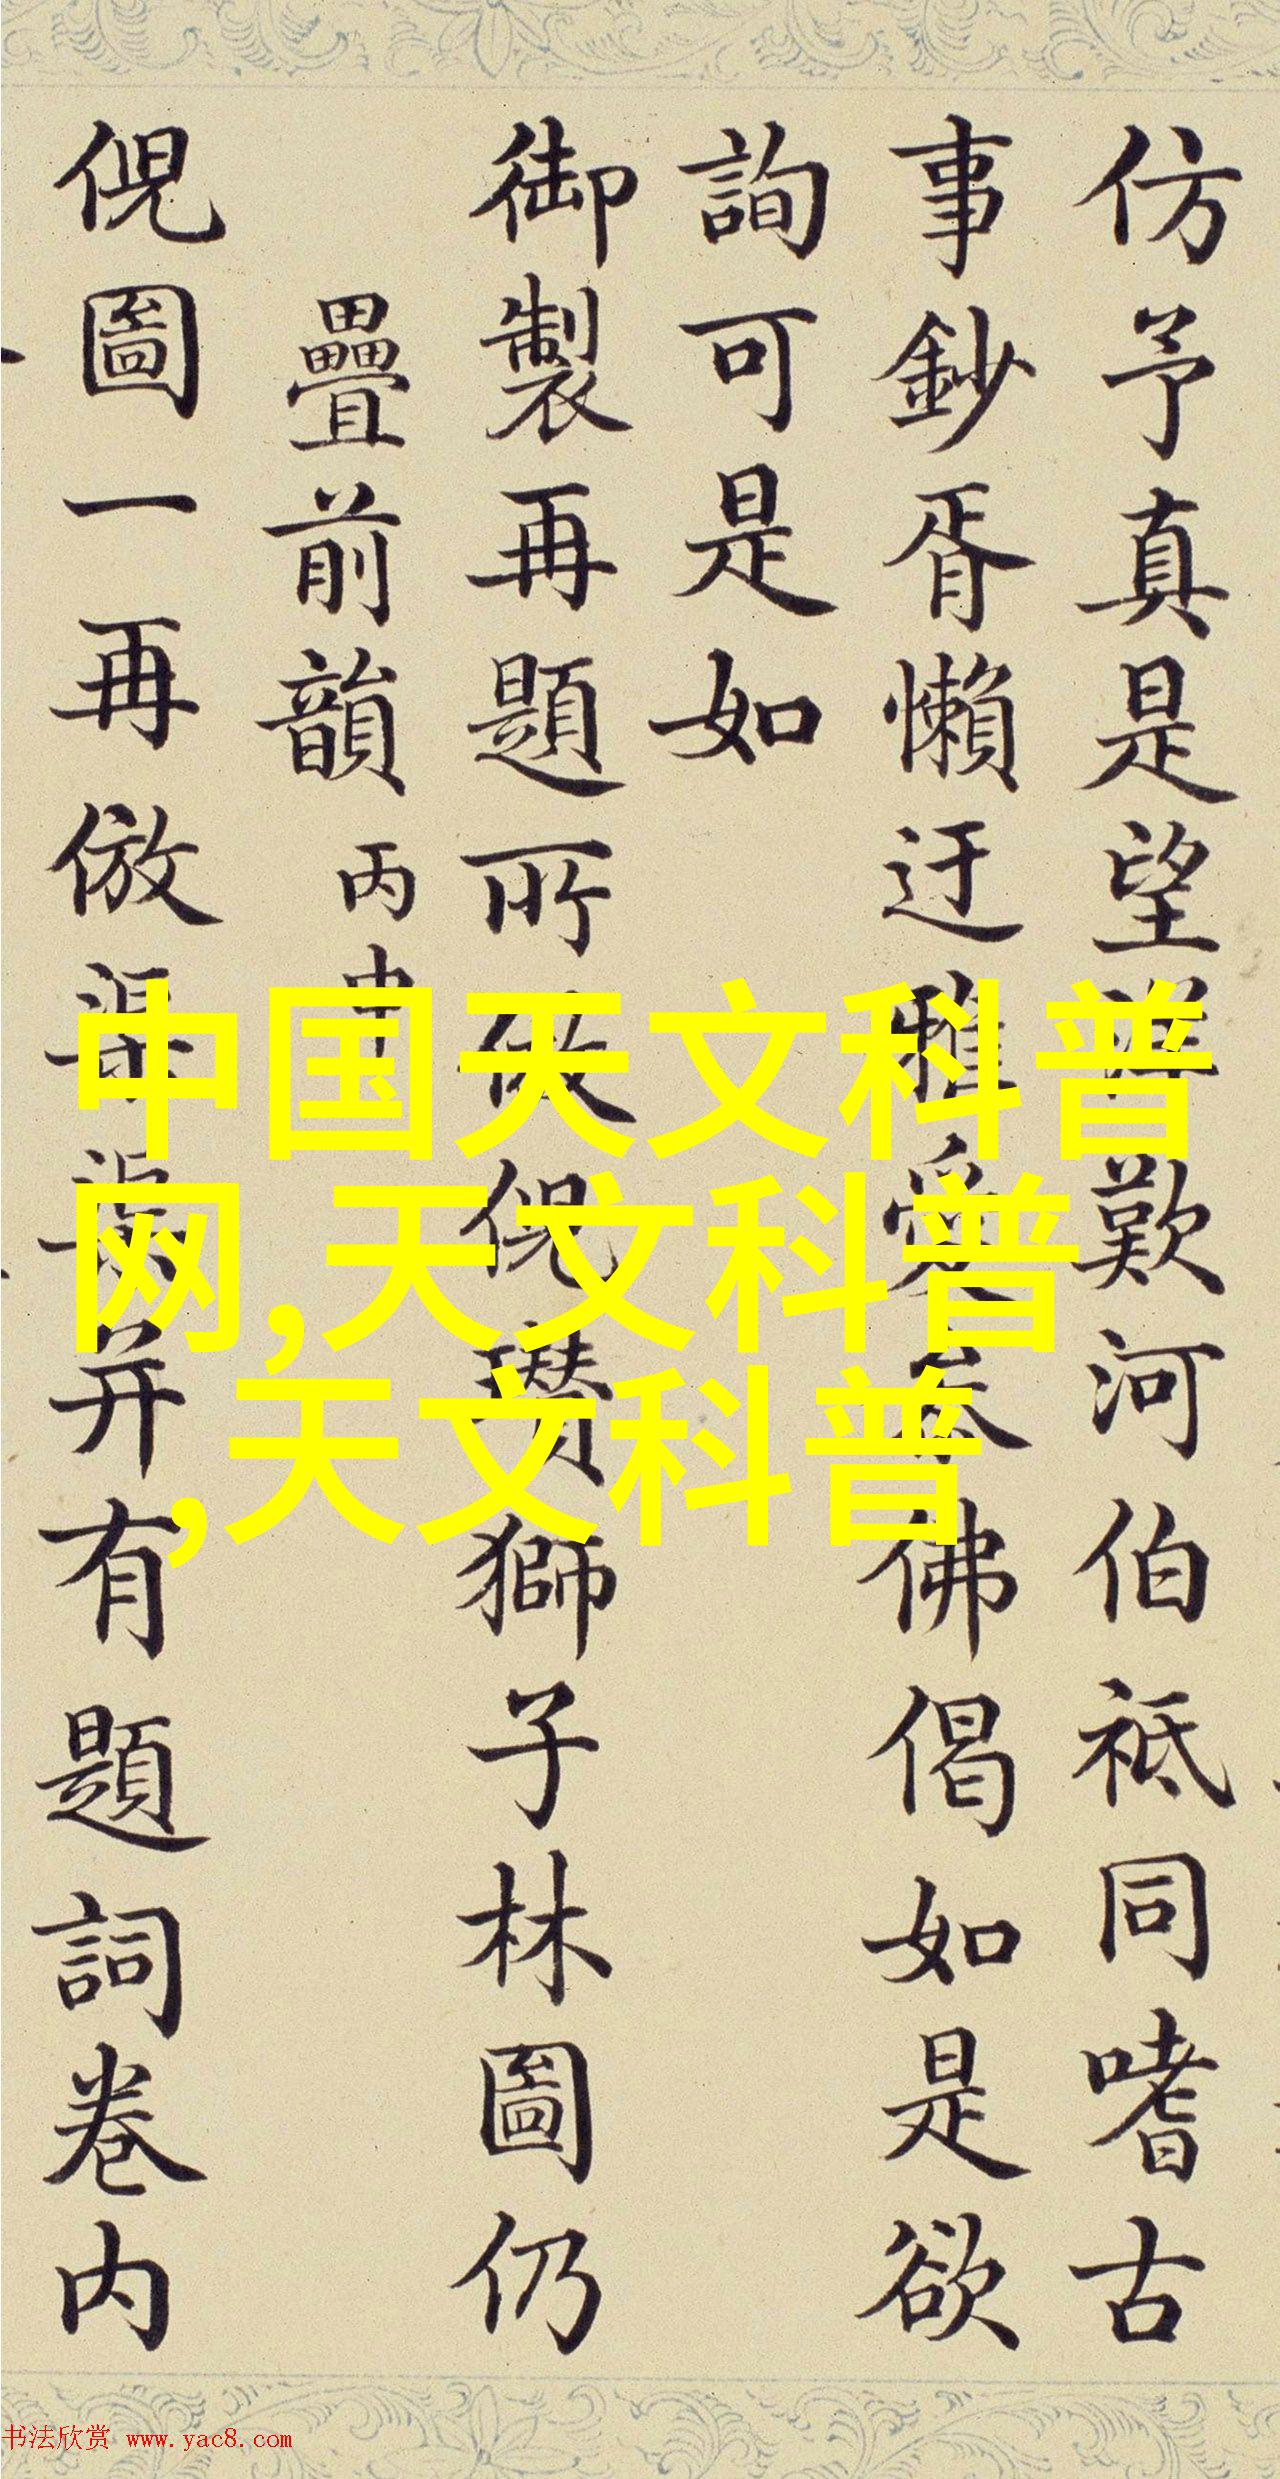 仿予真是望洋歎河伯祗同嗜古
事鈔胥懶迂雅愛參佛偈如是欲
詢可是如
御製再題所倣倪瓚獅子林圖仍
疊前韻 丙申
倪圖一再倣渠長并有題詞卷内
中国天文科普
网,天文科普
,天文科普
书法欣赏 www.yac8.com